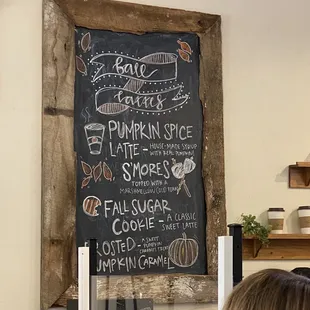 fall
lattes
PUMPKIN SPICE
LATTE - HOUSE-MADE SYRUP
WITH REAL PUMPKIN!
S'MORES
TOPPED WITH A
MARSHMALLOW
FALL SUGAR
COOKIE - A CLASSIC
SWEET LATTE
OSTED - A SWEET
PUMPKIN
UMPKIN CARAMEL